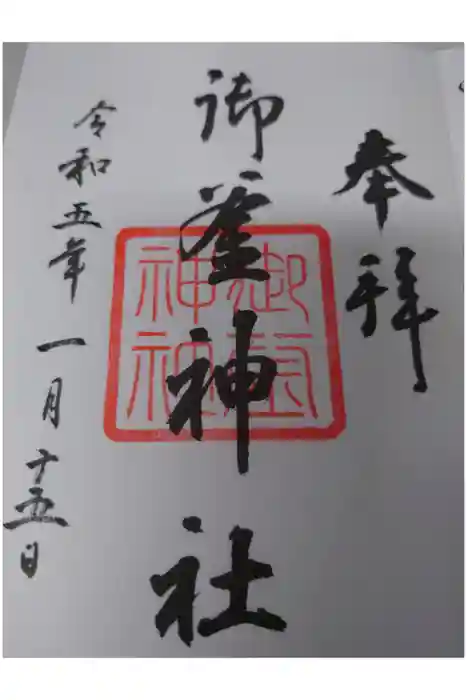 奉拝
御釜神社
御釜
神社
令和五年一月十五日